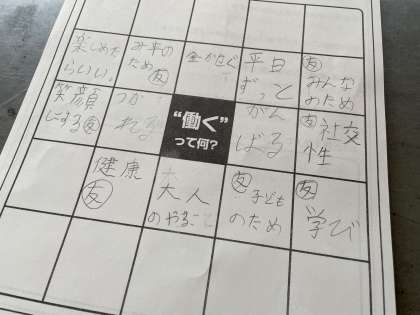 楽しめたらいい。
み来の
ため 友
金かせぐ
平日
ずっと
がん
ばる
友
みんな
のため
笑顔
にする 友
つか
れる
“働く”
って何?
友 社交
性
健康
友
大人
のやること
友 子ども
のため
友
学び